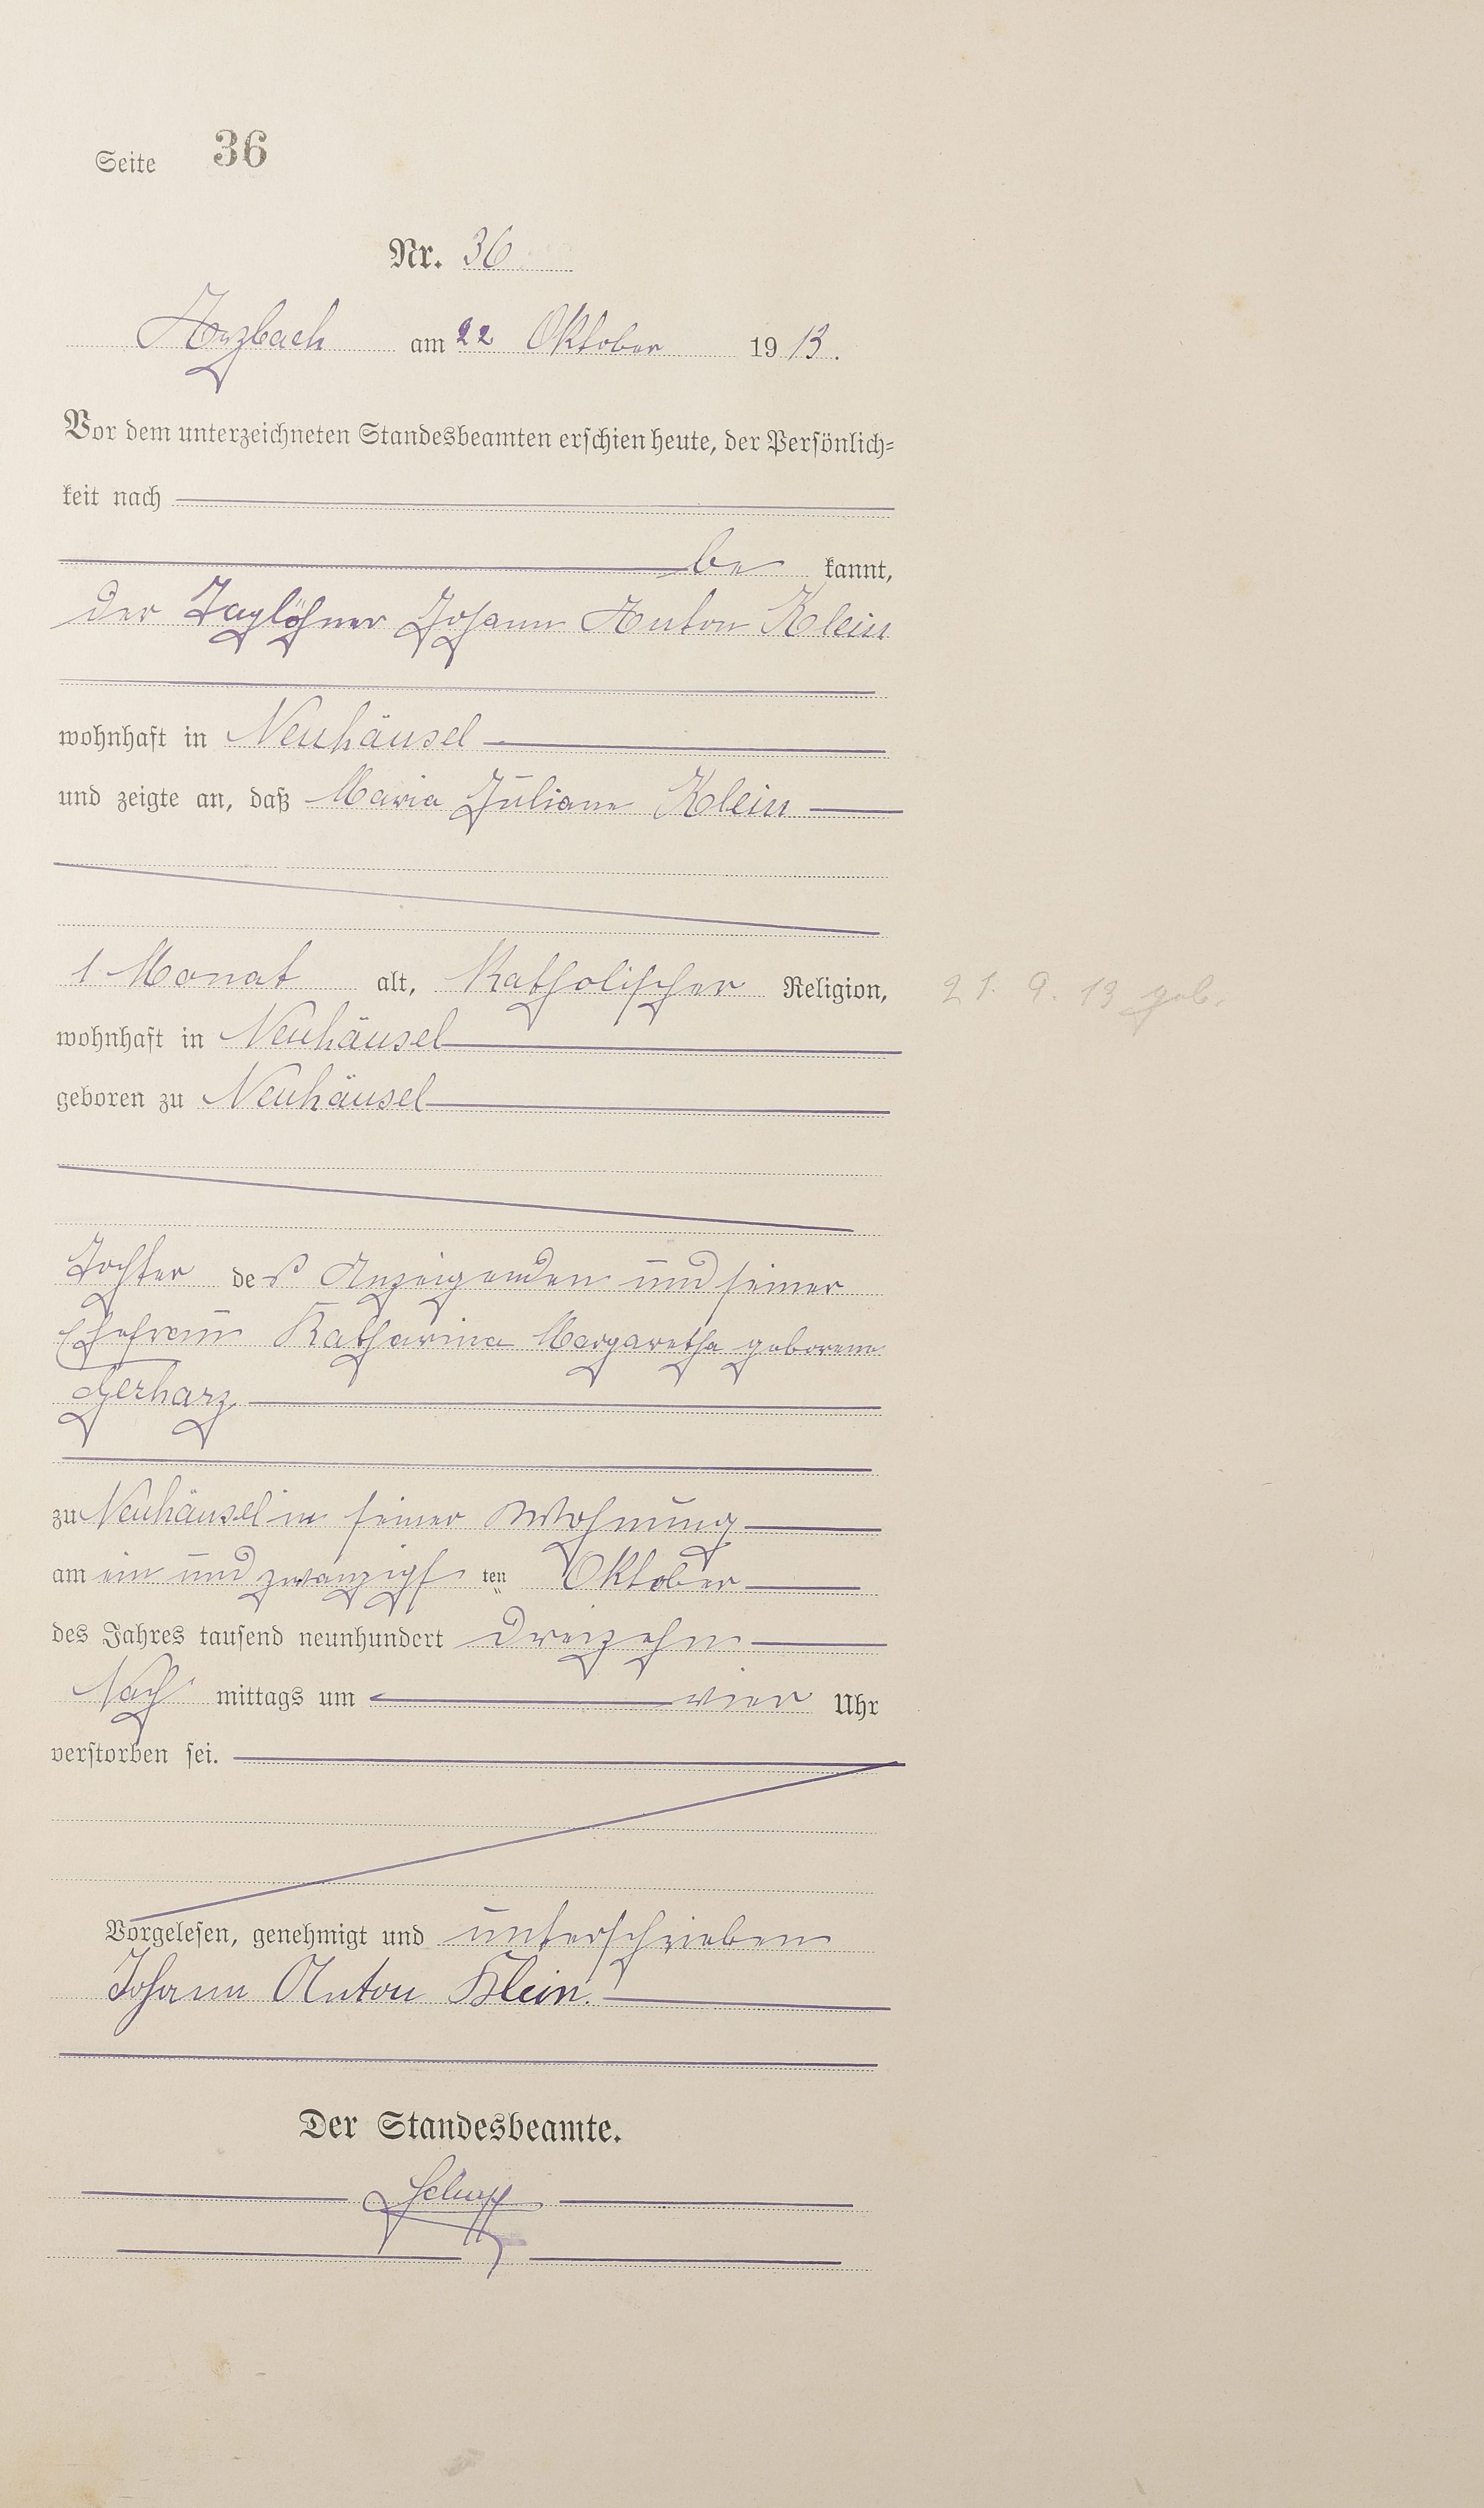 Seite 36
Nr. 36
Arzbach am 22 Oktober 1913.
Vor dem unterzeichneten Standesbeamten erschien heute, der Persönlich=
keit nach
be kannt,
der Taglöhner Johann Anton Klein
wohnhaft in Neuhäusel
und zeigte an, daß Maria Juliane Klein
1 Monat alt, Katholischer Religion, 21. 9. 13 geb.
wohnhaft in Neuhäusel
geboren zu Neuhäusel
Tochter des Anzeigenden und seiner
Ehefrau Katharina Margaretha geborene
Gerharz
zu Neuhäusel in seiner Wohnung
am ein und zwanzigsten Oktober
des Jahres tausend neunhundert dreizehn
Nach mittags um vier Uhr
verstorben sei.
Vorgelesen, genehmigt und unterschrieben
Johann Anton Klein.
Der Standesbeamte.